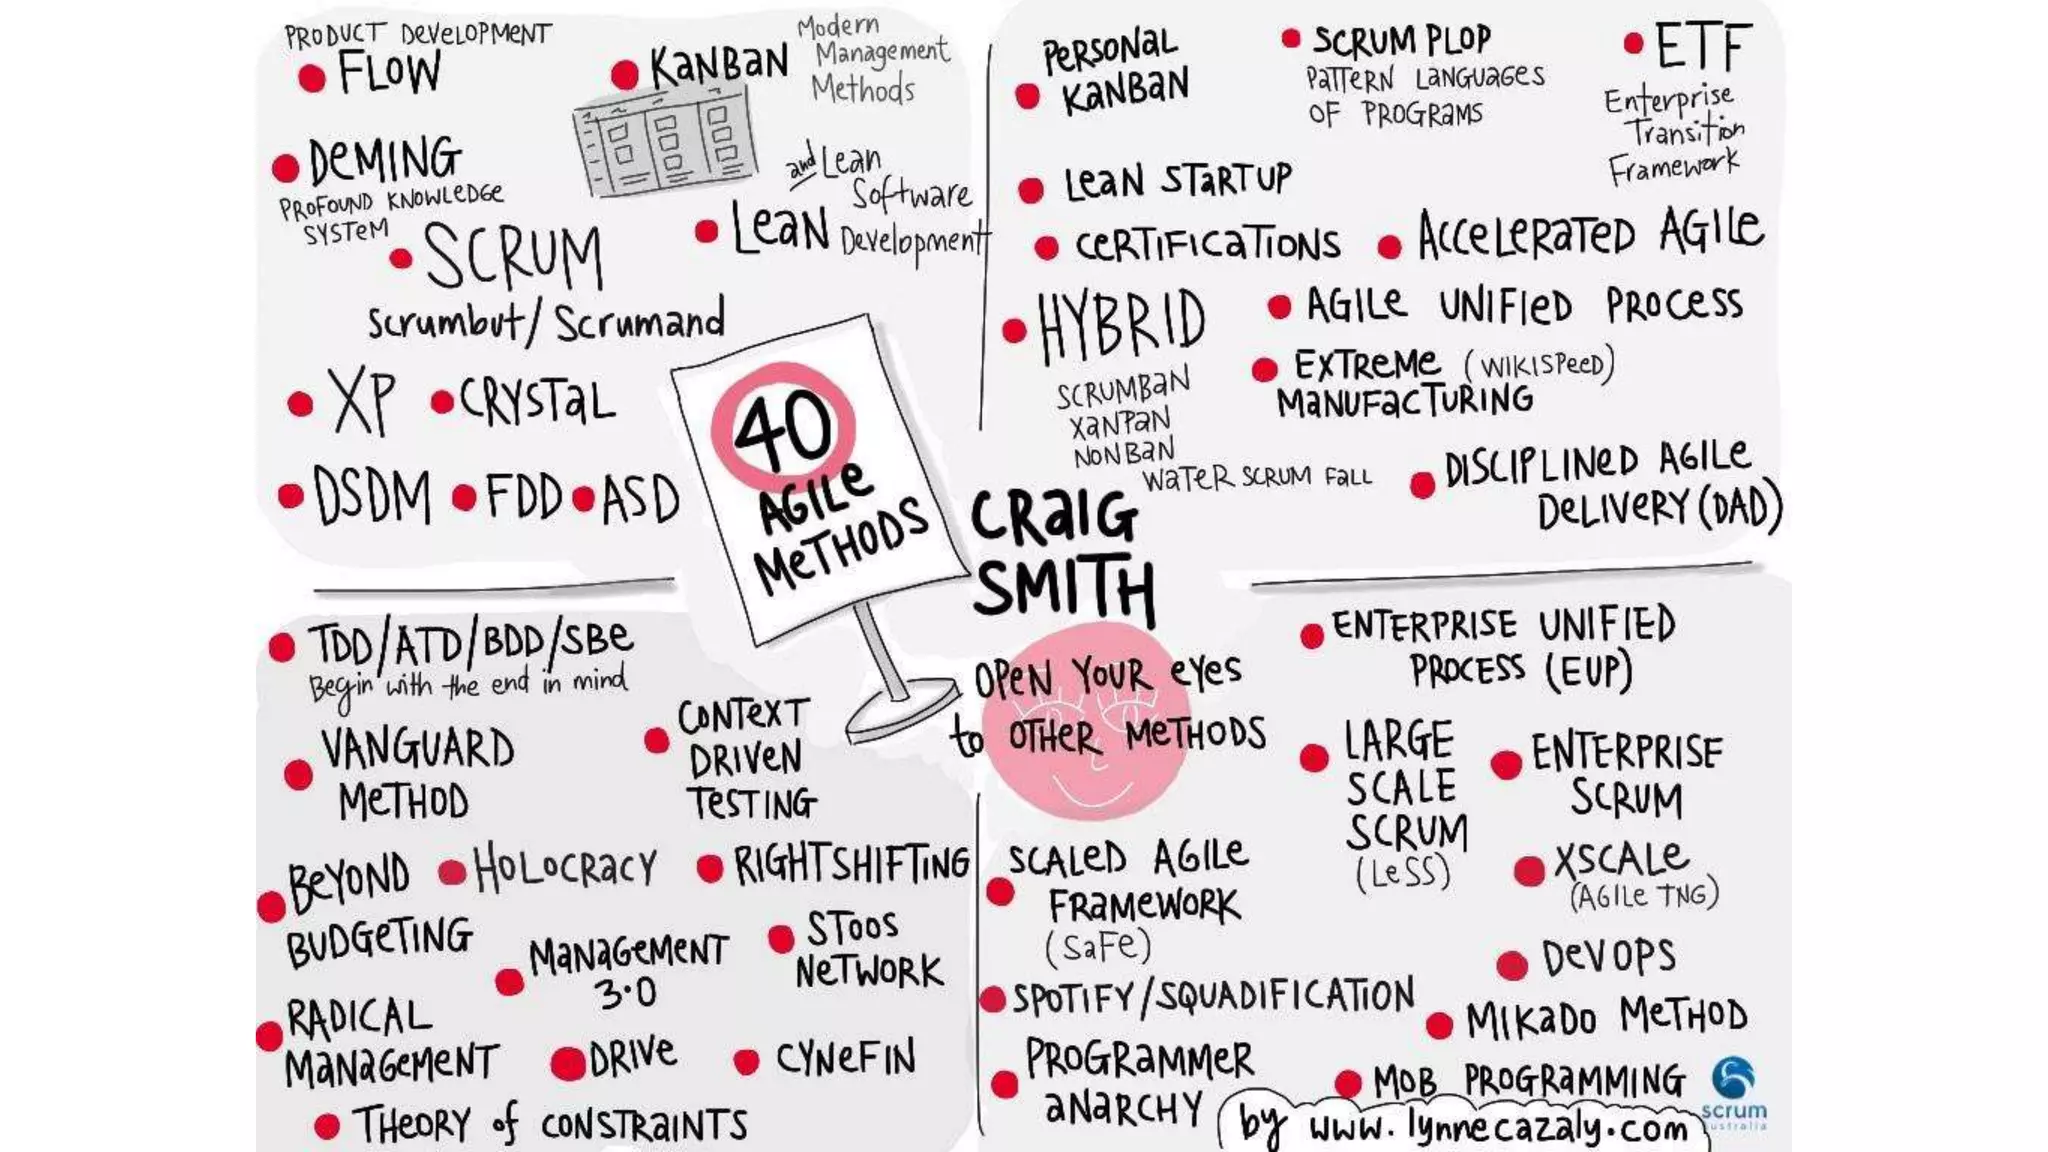 PRODUCT DEVELOPMENT
FLOW
KANBAN
Modern
Management
Methods
DEMING
PROFOUND KNOWLEDGE
SYSTEM
and Lean
Software
LEAN Development
SCRUM
Scrumbut/Scrumand
XP
CRYSTAL
DSDM
FDD
ASD
PERSONAL
KANBAN
SCRUM PLOP
PATTERN LANGUAGES
OF PROGRAMS
ETF
Enterprise
Transition
Framework
LEAN STARTUP
CERTIFICATIONS
ACCELERATED AGILE
HYBRID
SCRUMBAN
XANPAN
NONBAN
WATER SCRUM FALL
AGILE UNIFIED PROCESS
EXTREME (WIKISPEED)
MANUFACTURING
DISCIPLINED AGILE
DELIVERY (DAD)
40
AGILE
METHODS
CRAIG
SMITH
OPEN YOUR EYES
to OTHER METHODS
TDD/ATD/BDD/SBE
Begin with the end in mind
VANGUARD
METHOD
CONTEXT
DRIVEN
TESTING
BEYOND
BUDGETING
HOLOCRACY
RIGHTSHIFTING
MANAGEMENT
3.0
STOOS
NETWORK
RADICAL
MANAGEMENT
DRIVE
CYNEFIN
THEORY of CONSTRAINTS
ENTERPRISE UNIFIED
PROCESS (EUP)
LARGE
SCALE
SCRUM
(LeSS)
ENTERPRISE
SCRUM
SCALED AGILE
FRAMEWORK
(SaFe)
XSCALE
(AGILE TNG)
DEVOPS
SPOTIFY/SQUADIFICATION
MIKADO METHOD
PROGRAMMER
ANARCHY
MOB PROGRAMMING
by www.lynnecazaly.com
scrum
australia